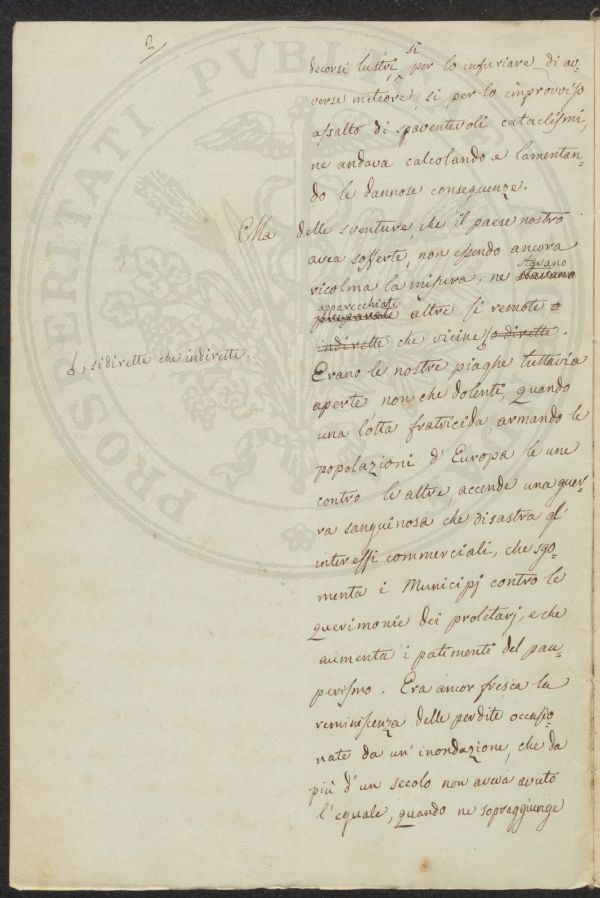 2
decorsi lustri, si per lo infuriare di av=
verse meteore, si per lo improvviso
assalto di spaventevoli cataclismi,
ne andava calcolando e lamentan=
do le dannose conseguenze.
Ma delle sventure, che il paese nostro
avea sofferte, non essendo ancora
ricolma la misura, ne stavano
apparecchiate altre si remote o
indirette che vicine o dirette.
, si dirette che indirette.
Erano le nostre piaghe tuttavia
aperte non che dolenti, quando
una lotta fratricida, armando le
popolazioni d'Europa le une
contro le altre, accende una guer=
ra sanguinosa che disastra gl'
interessi commerciali, che sgo=
menta i Municipj contro le
querimonie dei proletarj, e che
aumenta i patimenti del pau=
perismo. Era ancor fresca la
reminiscenza delle perdite occasio=
nate da un'inondazione, che da
più d'un secolo non aveva avuto
l'eguale, quando ne sopraggiunge
PROSPERITATI PVBLI